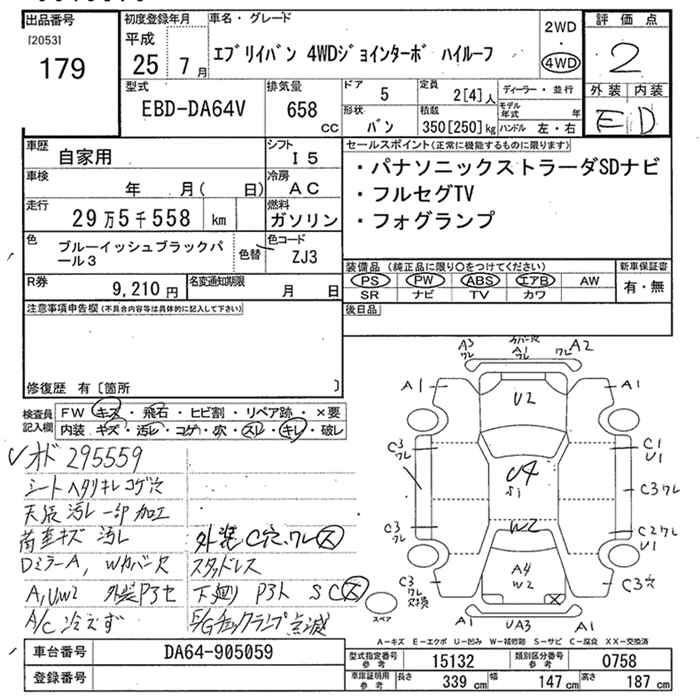 出品番号
[2053]
179
初度登録年月
平成
25 7月
車名・グレード
エブリイバン 4WDジョインターボ ハイルーフ
2WD
・
4WD
評価点
2
外装 内装
E D
型式
EBD-DA64V
排気量
658 cc
ドア 5
定員 2[4]人
ディーラー・並行
形状 バン
積載 350[250]kg
モデル年式 年
ハンドル 左・右
車歴 自家用
シフト I5
車検 年 月( 日)
冷房 AC
走行 29万5千558 km
燃料 ガソリン
色 ブルーイッシュブラックパール3
色替
色コード ZJ3
R券 9,210円
名変通知期限 月 日
セールスポイント(正常に機能するものに限ります)
・パナソニックストラーダSDナビ
・フルセグTV
・フォグランプ
装備品 (純正品に限り○をつけてください)
新車保証書
PS PW ABS エアB AW
SR ナビ TV カワ
有・無
後日品
注意事項申告欄(不具合内容等は具体的に記入して下さい)
修復歴 有[箇所 ]
検査員記入欄
FW キズ・飛石・ヒビ割・リペア跡・×要
内装 キズ・汚レ・コゲ・穴・スレ・キレ・破レ
オド 295559
シートヘタリキレコゲ穴
天張汚レ 一部加工
荷室キズ 汚レ
外装C穴、ワレ
DミラーA、Wカバー欠
スタッドレス
A,U,W2 外装P3セ
下廻り P3ト SC
A/C 冷えず
E/Gチェックランプ点滅
A3 ワレ
カバー欠
A1
ワレ A2
A1
A1
U2
C3 ワレ
C1
U1
U4
S1
C3ワレ
C3 ワレ
W2
C2ワレ
U1
A4
W2
C3 ワレ 欠損
C3穴
スペア
A1
UA3
A1
A-キズ E-エクボ U-凹み W-補修跡 S-サビ C-腐食 XX-交換済
車台番号 DA64-905059
登録番号
型式指定番号 参考 15132
類別区分番号 参考 0758
車庫証明用 参考
長さ 339cm
幅 147cm
高さ 187cm